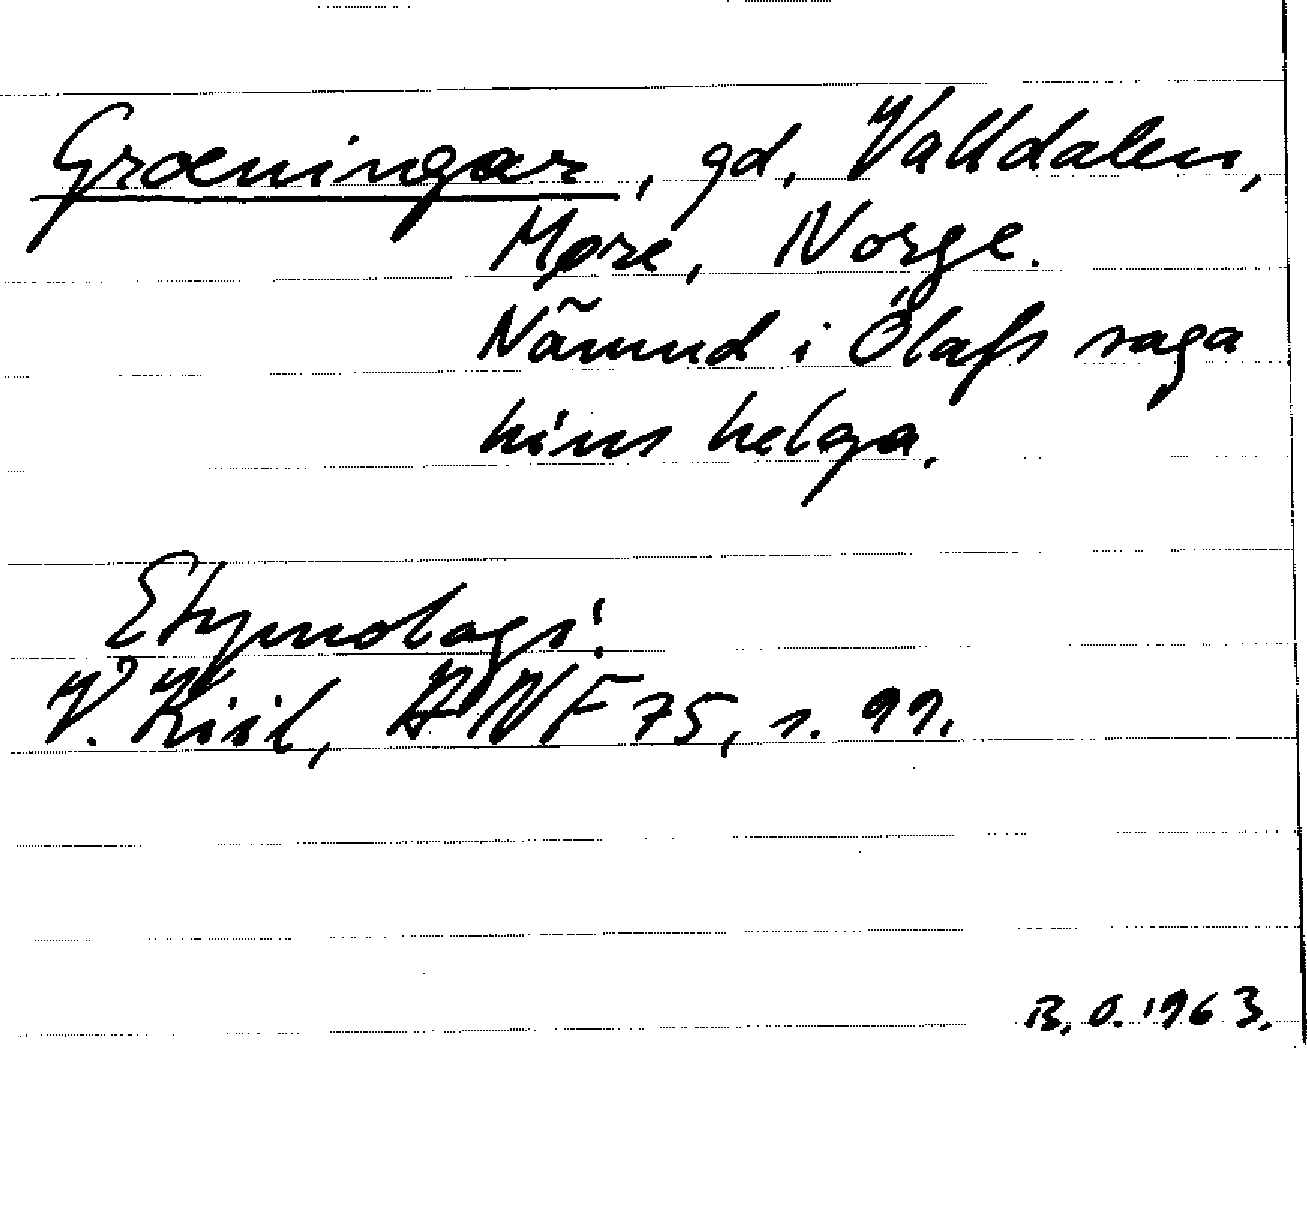 Grœningar, gd, Valldalen,
Møre, Norge.
Nämnd i Ólafs saga
hins helga.
Etymologi:
V. Kiil, ANF 75, s. 99.
B. O. 1963.